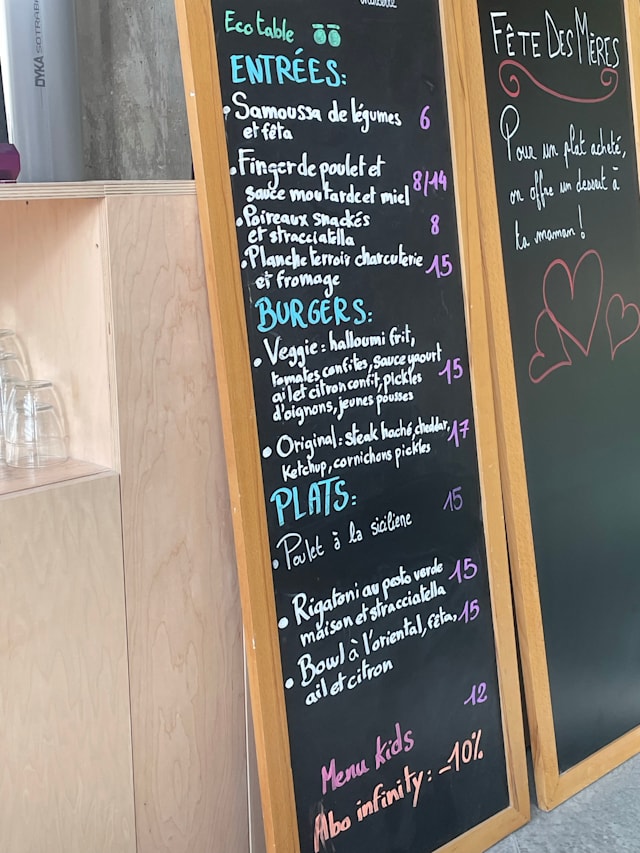 DYKA SOTRA
Ecotable
ENTRÉES:
• Samoussa de légumes
et fêta 6
• Finger de poulet et
sauce moutarde et miel 8/14
• Poireaux snackés
et stracciatella 8
• Planche terroir charcuterie
et fromage 15
BURGERS:
• Veggie: halloumi frit,
tomates confites, sauce yaourt
ail et citron confit, pickles 15
d'oignons, jeunes pousses
• Original: steak haché, cheddar, 17
Ketchup, cornichons pickles
PLATS:
• Poulet à la sicilienne 15
• Rigatoni au pesto verde 15
maison et stracciatella
• Bowl à l'oriental, fêta, 15
ail et citron
12
Menu kids
Abo infinity: -10%
FÊTE DES MÈRES
Pour un plat acheté,
on offre un dessert à
ta maman!